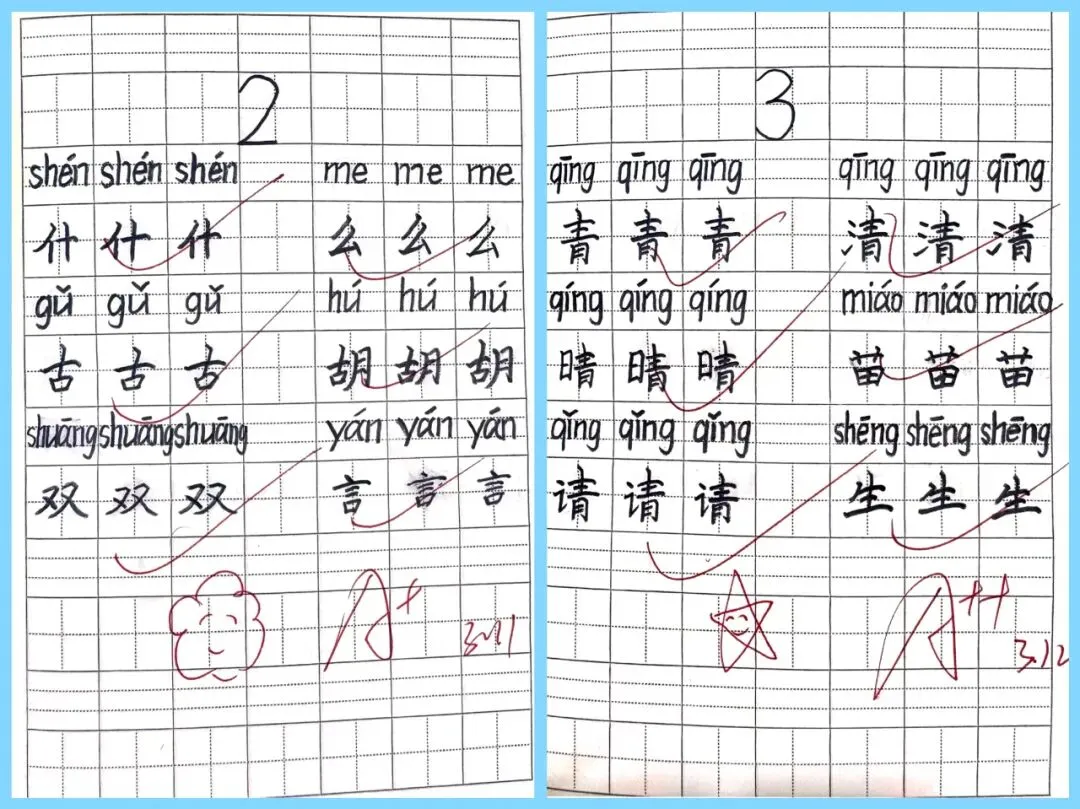 2
shén shén shén me me me
什 什 什 么 么 么
gǔ gǔ gǔ hú hú hú
古 古 古 胡 胡 胡
shuāng shuāng shuāng yán yán yán
双 双 双 言 言 言
A+ 3.11
3
qīng qīng qīng qīng qīng qīng
青 青 青 清 清 清
qíng qíng qíng miáo miáo miáo
晴 晴 晴 苗 苗 苗
qǐng qǐng qǐng shēng shēng shēng
请 请 请 生 生 生
A++ 3.12